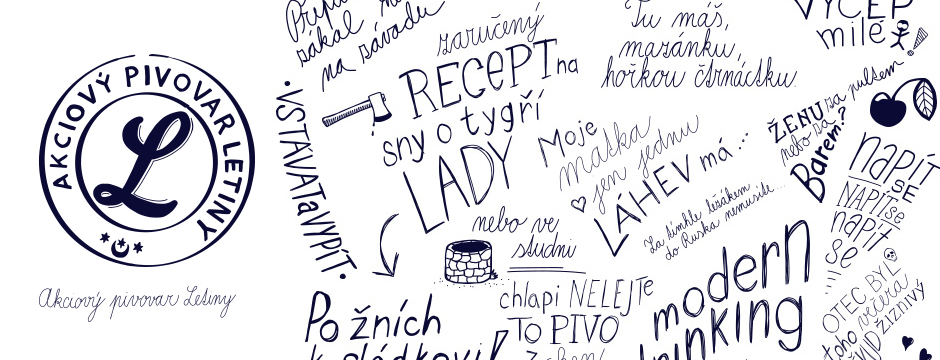 AKCIOVÝ PIVOVAR LETINY
L
Akciový pivovar Letiny
zákal
na závadu
•VSTÁVAT a VYPÍT•
zaručený
RECEPT na
sny o tygří
LADY
nebo ve
studni
Po žních
chlapi NELEJTE
TO PIVO
Tu máš,
mazánku,
hořkou čtrnáctku.
Moje
matka
jen jednu
LÁHEV má...
La dímhle ležákem
do Ruska nemusíte...
modern
VÝČEP
milé
ŽENU za pultem
nebo za
Barem?
napít
SE
NAPÍT se
napít
se
OTEC BYL
toho včera
ŽÍZNIVÝ